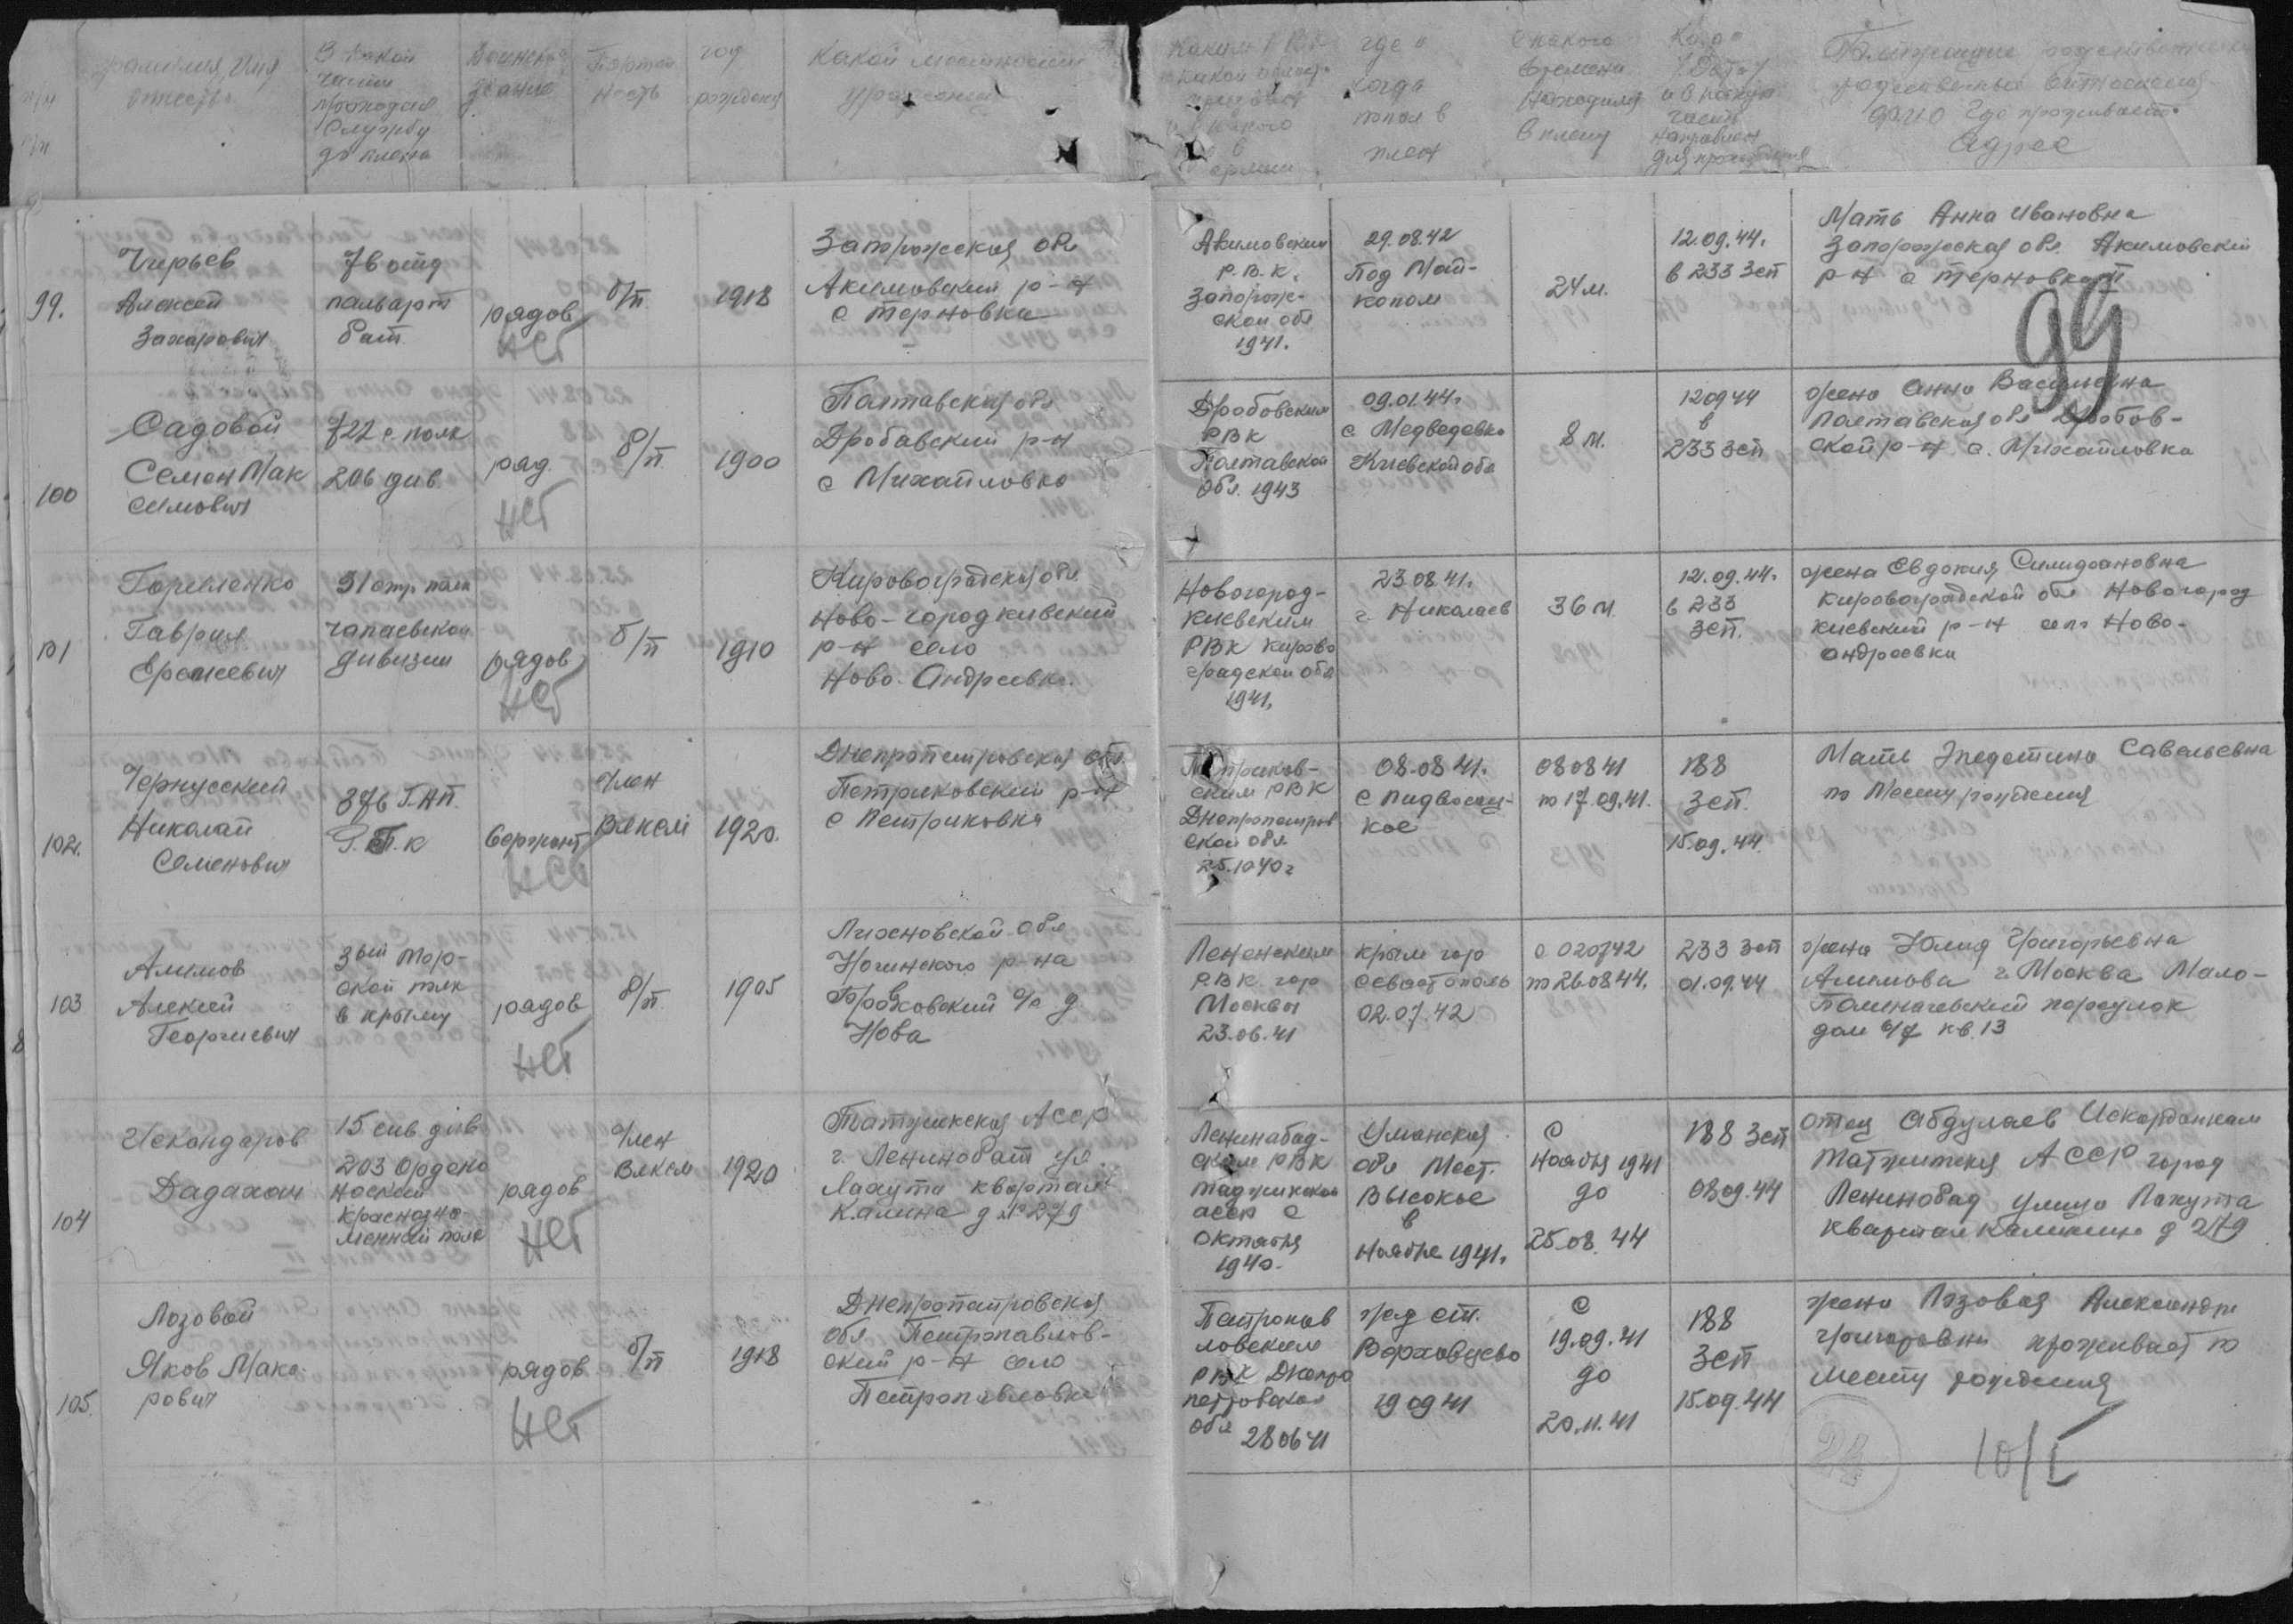 фамилия, Имя
отчество
В какой
части
проходил
Службу
до плена
Воинское
звание
Партий
ность
год
рождения
Какой местности
уроженец
Каким РВК
где и
когда
попал в
плен
С какого
времени
находился
в плену
Когда
направлен
Ближайшие родственники
родственные отношения
фио где проживает
Адрес
99.
Чирьев
Алексей
Захарович
78 отд
пальарт
бат.
рядов
нет
б/п
1918
Запорожская обл
Акимовский р-н
с Терновка
Акимовским
Р.В.К.
Запорож-
ской обл
1941.
29.08.42
Под Май-
копом
24 м.
12.09.44.
в 233 Зсп
Мать Анна Ивановна
Запорожская обл. Акимовский
р-н с Терновка
99
100
Садовой
Семен Мак
симович
722 с. полк
206 див.
ряд.
нет
б/п
1900
Полтавская обл
Дробавский р-н
с Михайловка
Дробовским
РВК
Полтавской
Обл. 1943
09.01.44г
с Медведевка
Киевской обл
8 м.
120944
в
233 зсп
жена Анна Васильевна
Полтавская обл Дробов-
ской р-н с. Михайловка
101
Горпенко
Гаврил
Еремеевич
31 стр. полк
чапаевской
дивизии
рядов
нет
б/п
1910
Кировоградская обл.
Ново-городкивский
р-н село
Ново-Андреевка.
Новогород-
киевским
РВК Кирово
градской обл
1941.
23.08.41.
г. Николаев
36 м.
12.09.44.
в 233
зсп.
жена Евдокия
Кировоградской обл Новогород
киевский р-н село Ново-
андреевка
102.
Чернусский
Николай
Семенович
376 Г.АП.
Р.Г.К
Сержант
нет
член
влксм
1920.
Днепропетровская обл.
Петриковский р-н
с Петриковка
Петриков-
ским РВК
Днепропетров
ской обл.
25.10 40г
08.08 41.
с Пидвосоц-
кое
080841
по 17.09.41.
188
Зсп.
15.09.44.
Мать Савельевна
по Месту рождения
103
Алимов
Алексей
Георгиевич
3ьй Мор-
ской полк
в Крыму
рядов
нет
б/п
1905
Обл
Ногинского р-на
с/с д.
Нова
Лененским
РВК гор
Москвы
23.06.41
Крым гор
Севастополь
02.07.42
с 020742
по 260844.
233 зсп
01.09.44
жена Юлия Григорьевна
Алимова г. Москва Мало-
переулок
дом 6/7 кв. 13
104
Искандаров
Дадахон
15 сив. див
203 Ордено
носкии
краснозна-
менный полк
рядов
нет
член
Влксм
1920
Татжикская АССР
г. Ленинобат ул
Лахути квартал
Калина д № 279
Ленинабад-
ским РВК
таджикской
асср с
октября
1940.
Уманская
обл Мест.
Высокое
в
Ноябре 1941.
С
ноября 1941
до
25.08.44
188 Зсп
0309.44
отец Абдулаев Искорданхам
Татжитская АССР город
Ленинобад улица Лахута
Квартал Калинина д 279
105.
Лозовой
Яков Мака-
рович
рядов
нет
б/п
1918
Днепропетровская
Обл. Петропавлов-
ский р-н село
Петропавловка
Петропав
ловским
РВК Днепро
петровской
Обл
280641
жд ст.
Верховцево
190941
С
19.09.41
до
20.11.41
188
Зсп
15.09.44
жена Лозовая Александра
Григоровна проживает по
месту рождения
24